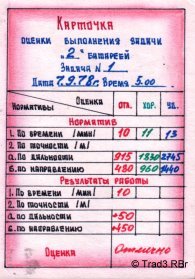 Карточка
оценки выполнения задачи
„2" батареей
Задача № 1
Дата 7.9.78г. Время 5.00
Нормативы Оценка отл. хор. уд.
Норматив
1. По времени /мин/ 10 11 13
2. По точности /м/
а. по дальности 915 1830 2745
б. по направлению 480 960 1440
Результаты работы
1. По времени /мин/ 10
2. По точности /м/
а. по дальности +50
б. по направлению +450
Оценка Отлично
© Trad3.RBr